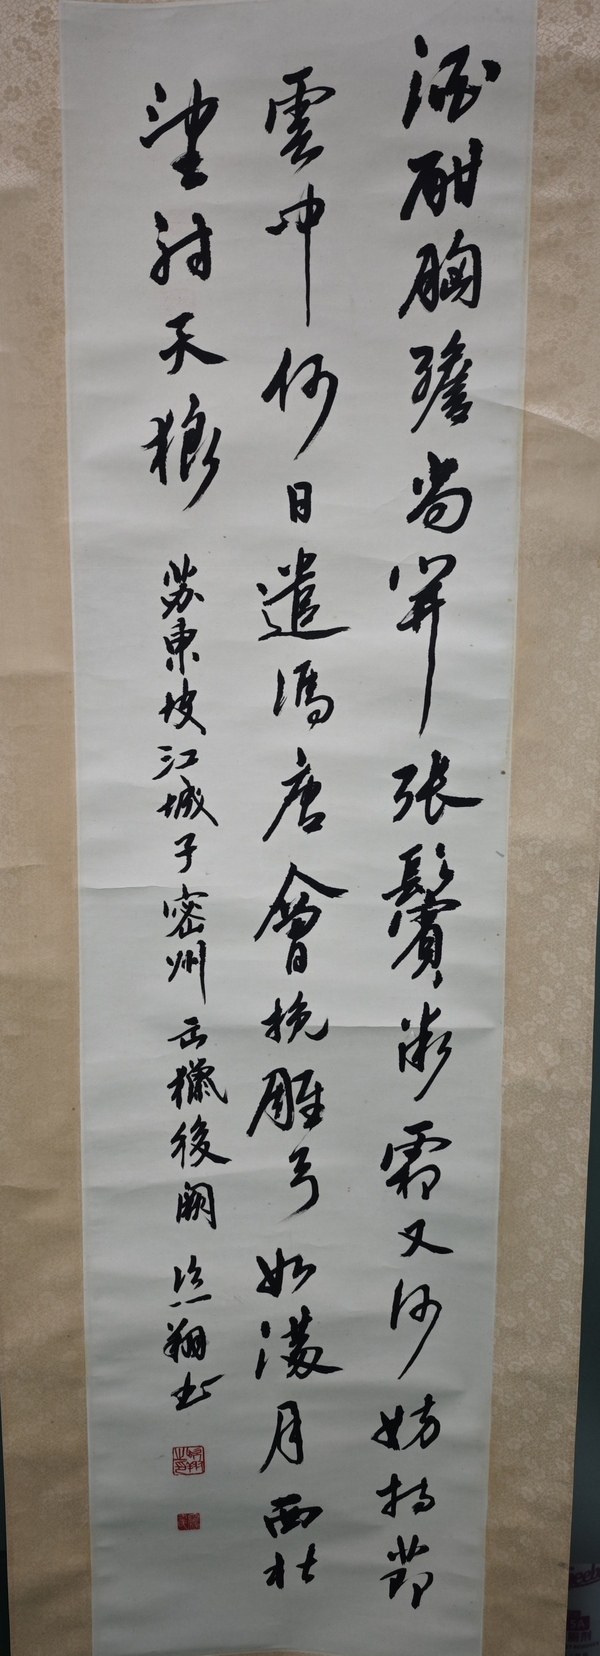 酒酣胸膽尚開張鬢微霜又何妨持節
雲中何日遣馮唐會挽雕弓如滿月西北
望射天狼
蘇東坡江城子密州出獵後闋 翔書